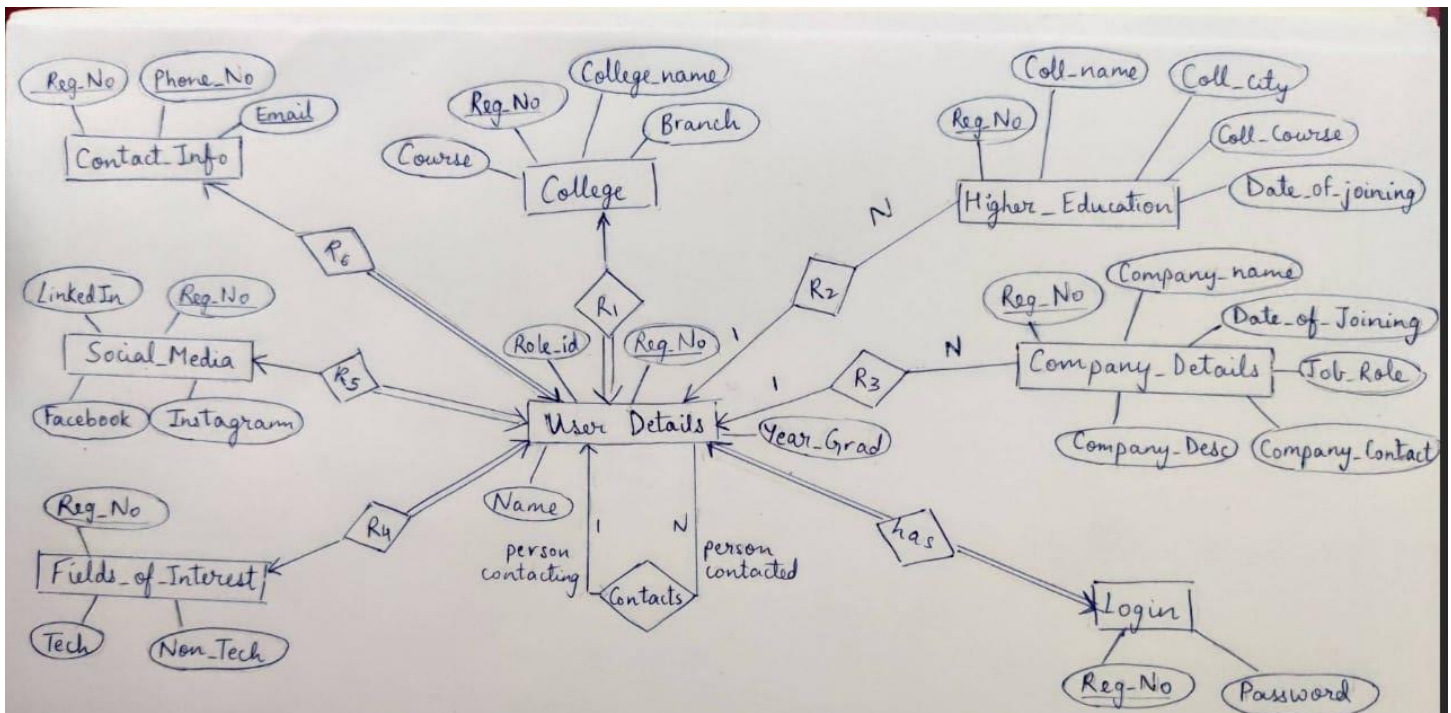 Reg_No
Phone_No
Email
Contact_Info
College_name
Reg_No
Branch
Course
College
Coll_name
Coll_city
Reg_No
Coll_Course
Date_of_joining
Higher_Education
R6
R1
R2
N
1
LinkedIn
Reg_No
Social_Media
Facebook
Instagram
R5
Role_id
Reg_No
User Details
Year_Grad
Name
Company_name
Reg_No
Date_of_Joining
Company_Details
Job_Role
Company_Desc
Company_Contact
N
R3
1
Reg_No
Fields_of_Interest
Tech
Non_Tech
R4
1
N
person
contacting
person
contacted
Contacts
has
Login
Reg_No
Password